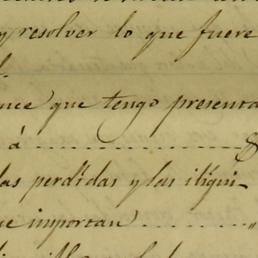 y resolver lo que fuere
que tengo presenta
á
las perdidas y las iliqui-
importan